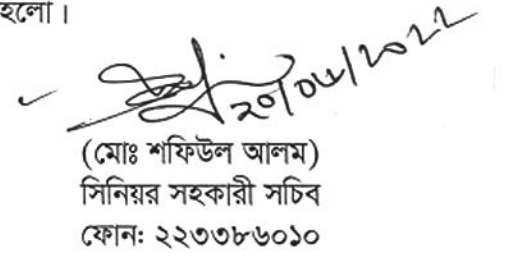 হলো।
২০/০৬/২০২২
(মোঃ শফিউল আলম)
সিনিয়র সহকারী সচিব
ফোন: ২২৩৩৮৬০১০